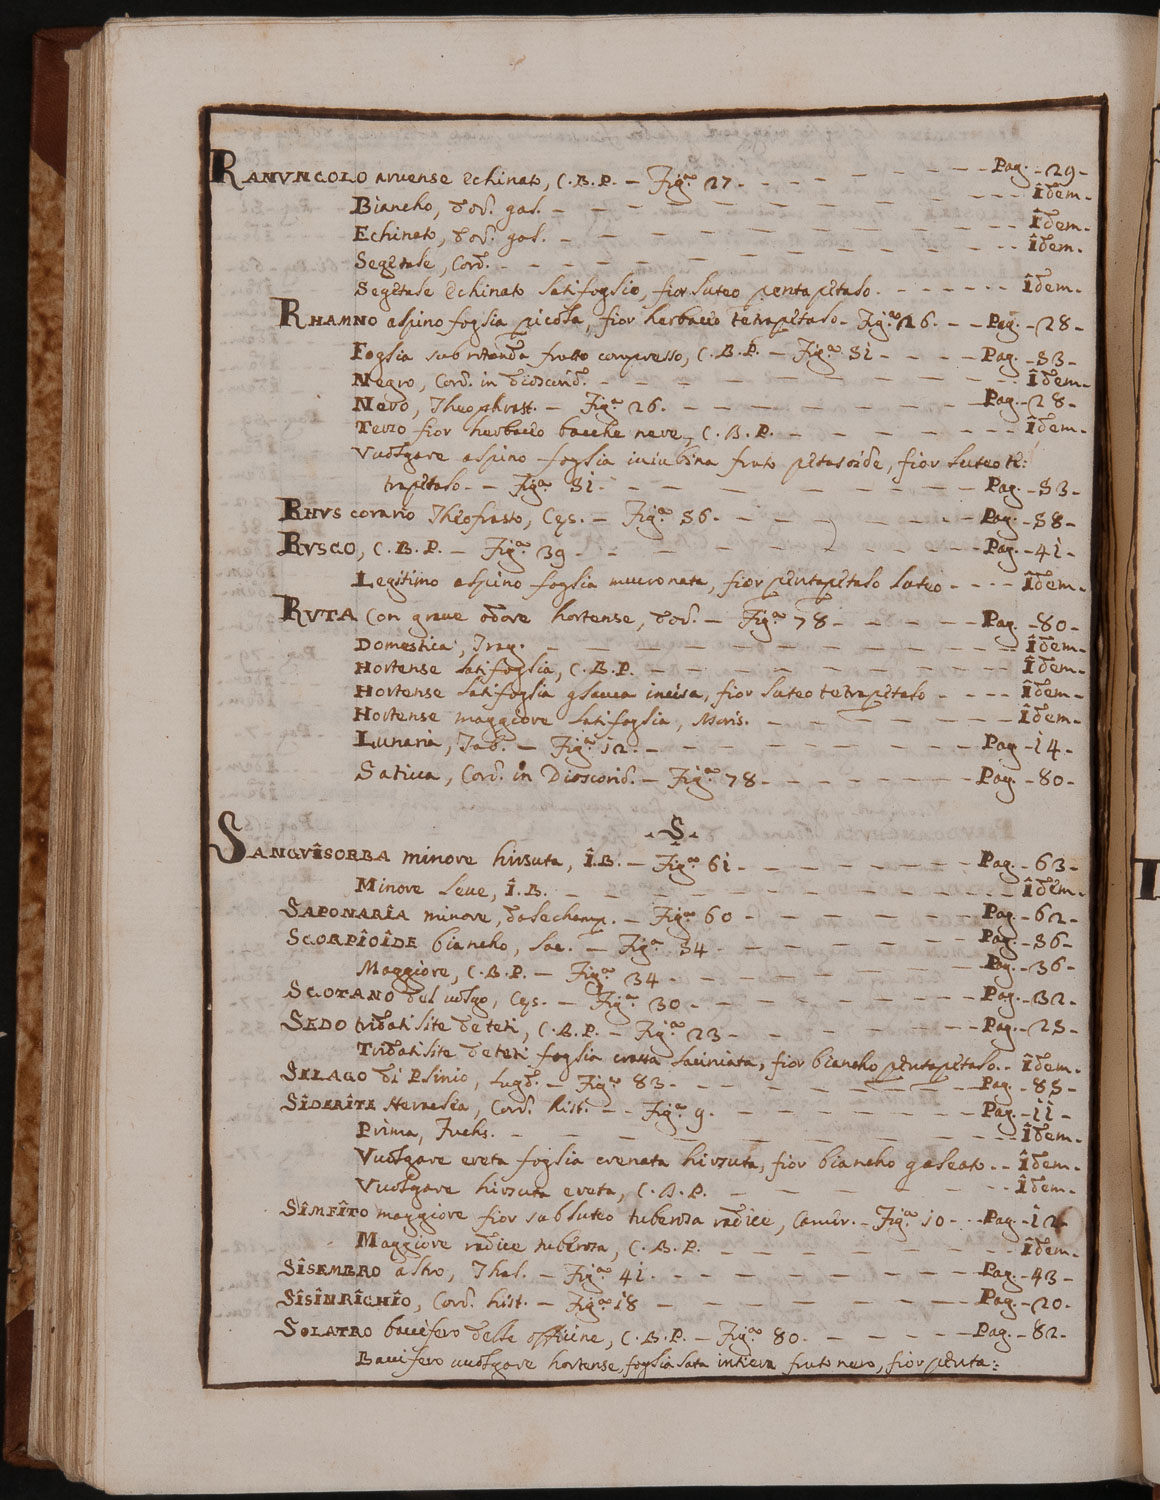 RANVNCOLO aruense Echinato, C.B.P. – Fig.ª 27 - - - - - - - Pag. - 29 -
Biancho, dod. gal. - - - - - - - Îdem -
Echinato, dod. gal. - - - - - - - Îdem -
Segetale, Cord. - - - - - - - Îdem -
Segetale Echinato latifoglio, fior luteo pentapetalo. - - - - - - Îdem -
RHAMNO aspino foglia picola, fior herbaceo tetrapetalo - Fig.ª 26. - - Pag. - 28 -
Foglia subrotonda frutto compresso, C.B.P. – Fig.ª 31 - - - - Pag. - 33 -
Negro, Cord. in dioscorid. - - - - - - - Îdem -
Nero, Theophrast. – Fig.ª 26. - - - - - - - Pag. - 28 -
Terzo fior herbaceo bacche nere, C.B.P. - - - - - - - Îdem -
Vuolgare aspino foglia iuiubina fruto petasoide, fior luteo te:
trapetalo - - Fig.ª 31 - - - - - - - Pag. - 33 -
RHVS corario Theofrasto, Ces. – Fig.ª 36 - - - - - - - Pag. - 38 -
RVSCO, C.B.P. – Fig.ª 39 - - - - - - - Pag. - 41 -
Legitimo aspino foglia mucronata, fior pentapetalo luteo - - - - Îdem -
RVTA con graue odore hortense, dod. – Fig.ª 78 - - - - - Pag. - 80 -
Domestica, Trag. - - - - - - - Îdem -
Hortense latifoglia, C.B.P. - - - - - - - Îdem -
Hortense latifoglia glauca incisa, fior luteo tetrapetalo - - - - Îdem -
Hortense maggiore latifoglia, Moris. - - - - - - - Îdem -
Lunaria, Tab. – Fig.ª 12. - - - - - - - Pag. - 14 -
Satiua, Cord. in Dioscorid. – Fig.ª 78 - - - - - - Pag. - 80 -
.S.
SANGVÎSORBA minore hirsuta, Î.B. – Fig.ª 61 - - - - - - Pag. - 63 -
Minore leue, Î.B. - - - - - - - Îdem -
SAPONARÎA minore, dalechamp. – Fig.ª 60 - - - - - - Pag. - 62 -
SCORPÎOÎDE biancho, – Fig.ª 34 - - - - - - Pag. - 36 -
Maggiore, C.B.P. – Fig.ª 34 - - - - - - - Pag. - 36 -
SCOTANO del uolgo, Ces. – Fig.ª 30 - - - - - - - Pag. - 32 -
SEDO tridatilite deteti, C.B.P. – Fig.ª 23 - - - - - - Pag. - 25 -
Tridatilite deteti foglia crassa laciniata, fior biancho pentapetalo. - Îdem -
SELAGO di Plinio, Lugd. – Fig.ª 83 - - - - - - - Pag. - 85 -
SÎDERÎTE Heraclea, Cord. hist. - - Fig.ª 9. - - - - - - Pag. - 11 -
Prima, Fuchs. - - - - - - - Îdem -
Vuolgare ereta foglia crenata hirsuta, fior biancho galeato. - - Îdem -
Vuolgare hirsuta ereta, C.B.P. - - - - - - - Îdem -
SÎMFÎTO maggiore fior subluteo tuberosa radice, Camer. - Fig.ª 10 - - Pag. - 12 -
Maggiore radice tuberosa, C.B.P. - - - - - - - Îdem -
SÎSEMBRO altro, Thal. – Fig.ª 41. - - - - - - - Pag. - 43 -
SÎSÎNRÎCHÎO, Cord. hist. – Fig.ª 18 - - - - - - - Pag. - 20 -
SOLATRO baccifero delle officine, C.B.P. – Fig.ª 80. - - - - - Pag. - 82 -
Baccifero uuolgare hortense, foglia lata intiera fruto nero, fior penta: